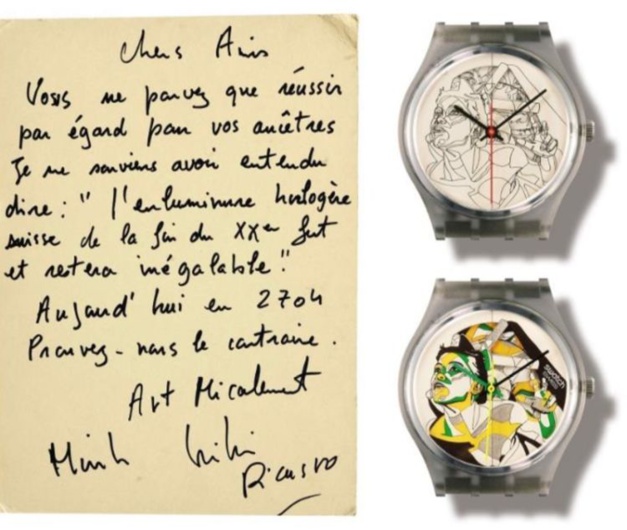 Chers Amis
Vous ne pouvez que réussir
par égard pour vos ancêtres
Je me souviens avoir entendu
dire : "l'enluminure horlogère
suisse de la fin du XXe fut
et restera inégalable."
Aujourd'hui en 2704
Prouvez-nous le contraire.
Art Micalement
Kiki
Picasso
swatch